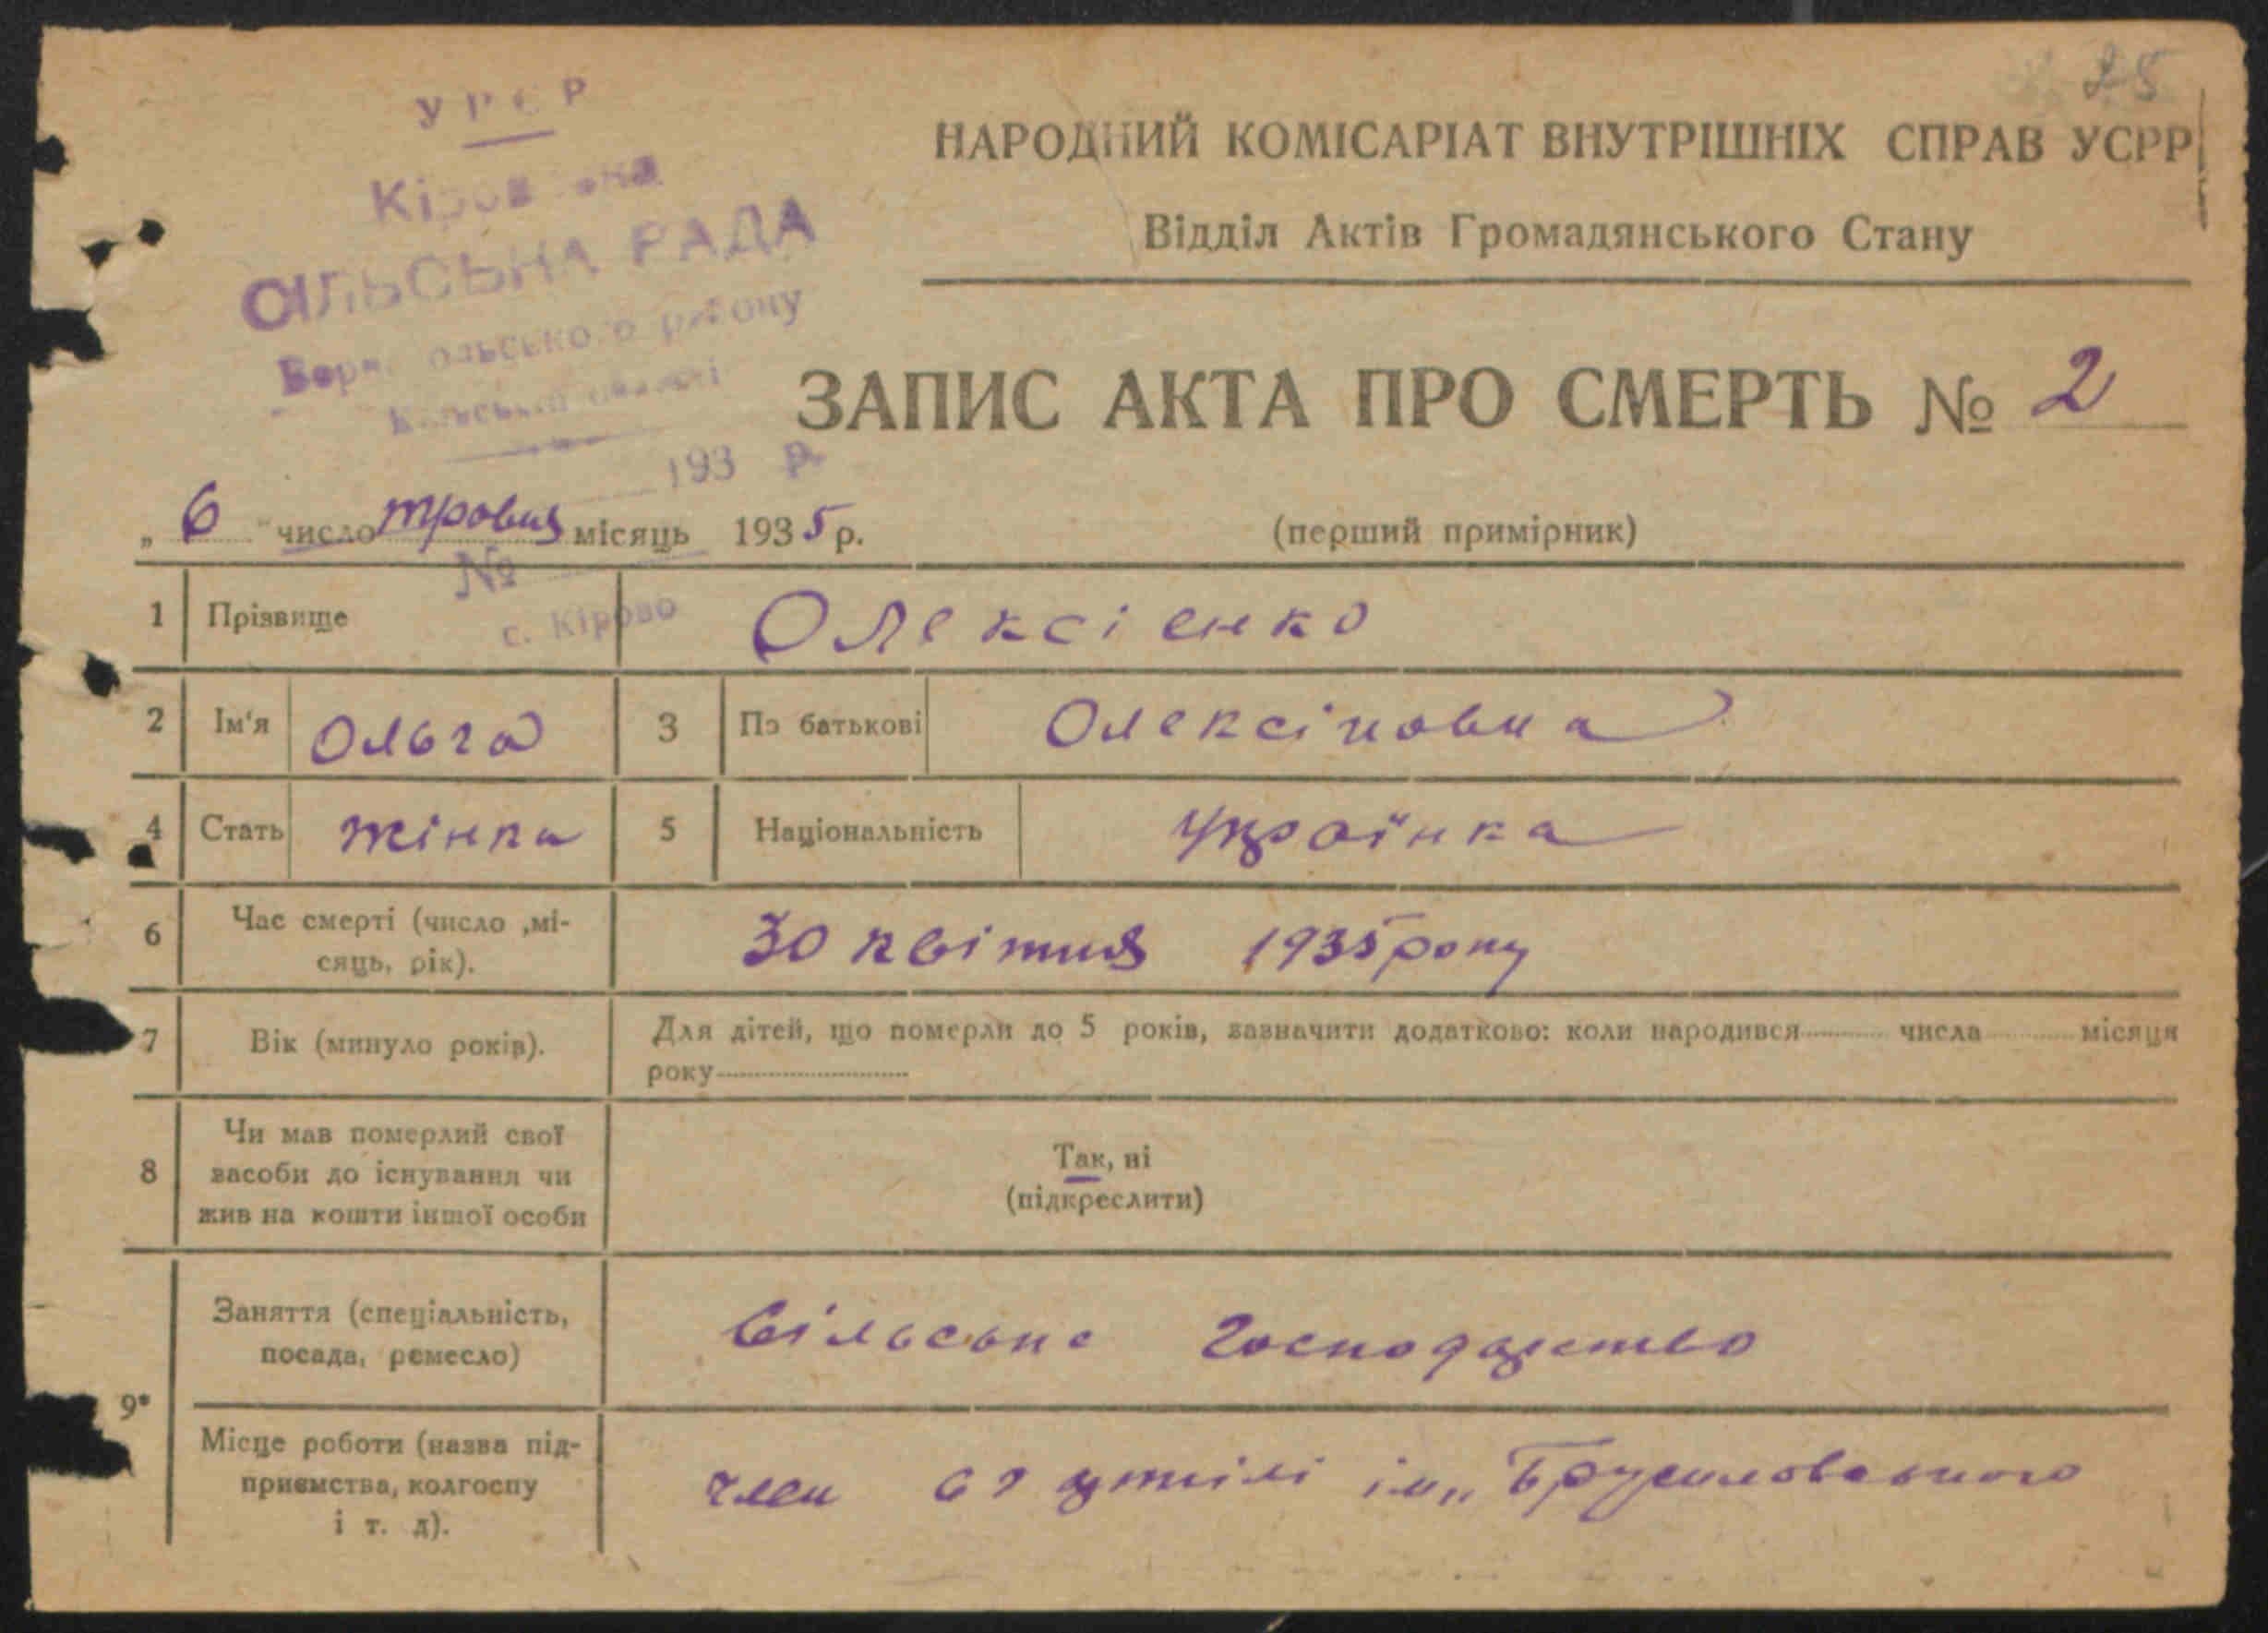 25
УРСР
СІЛЬСЬКА РАДА
району
193 р.
№
с. Кірово
НАРОДНИЙ КОМІСАРІАТ ВНУТРІШНІХ СПРАВ УСРР
Відділ Актів Громадянського Стану
ЗАПИС АКТА ПРО СМЕРТЬ № 2
„ 6 " число травня місяць 1935 р.
(перший примірник)
1 Прізвище Олексієнко
2 Ім'я Ольга 3 По батькові Олексіиовна
4 Стать жінка 5 Національність Українка
6 Час смерті (число ,мі-
сяць, рік). 30 квітня 1935 року
7 Вік (минуло років). Для дітей, що померли до 5 років, зазначити додатково: коли народився числа місяця
року
8 Чи мав померлий свої
засоби до існування чи
жив на кошти іншої особи
Так, ні
(підкреслити)
9* Заняття (спеціальність,
посада, ремесло) Сільське Господарство
Місце роботи (назва під-
приємства, колгоспу
і т. д).
член с? артілі ім„